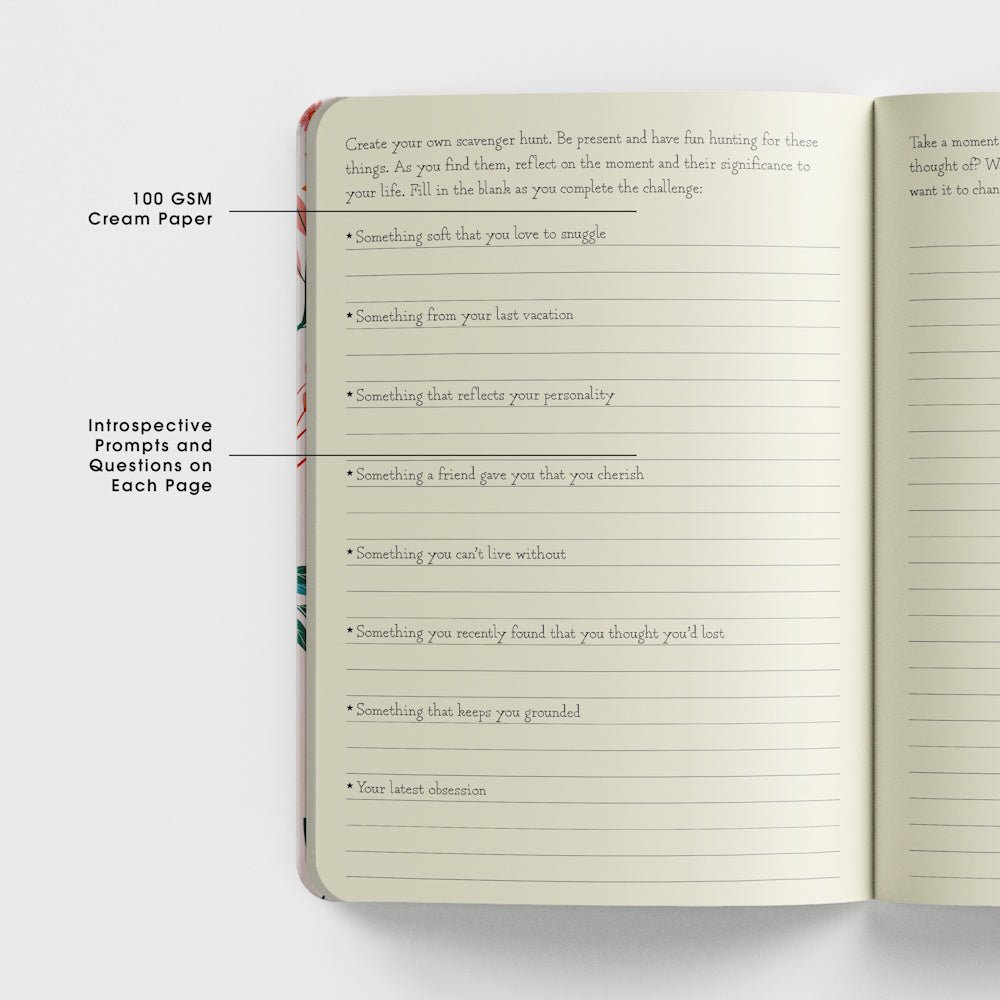 100 GSM
Cream Paper
Introspective
Prompts and
Questions on
Each Page
Create your own scavenger hunt. Be present and have fun hunting for these
things. As you find them, reflect on the moment and their significance to
your life. Fill in the blank as you complete the challenge:
★ Something soft that you love to snuggle
★ Something from your last vacation
★ Something that reflects your personality
★ Something a friend gave you that you cherish
★ Something you can't live without
★ Something you recently found that you thought you'd lost
★ Something that keeps you grounded
★ Your latest obsession
Take a moment
thought of? W
want it to chan